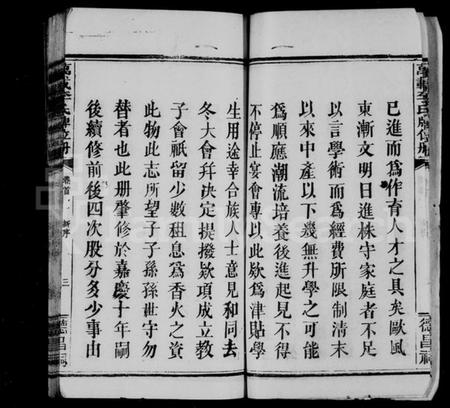 萬載李氏牌位册
德昌祠
已進而爲作育人才之具矣歐風
東漸文明日進株守家庭者不足
以言學術而爲經費所限制清末
以來中產以下幾無升學之可能
爲順應潮流培養後進起見不得
不停止宴會專以此欵爲津貼學
生用途幸合族人士意見和同去
冬大會幷决定提撥欵項成立教
子會祇留少數租息爲香火之資
此物此志所望子子孫孫世守勿
替者也此册肇修於嘉慶十年嗣
後續修前後四次股分多少事由
萬載李氏牌位册
卷首
新序
三
德昌祠